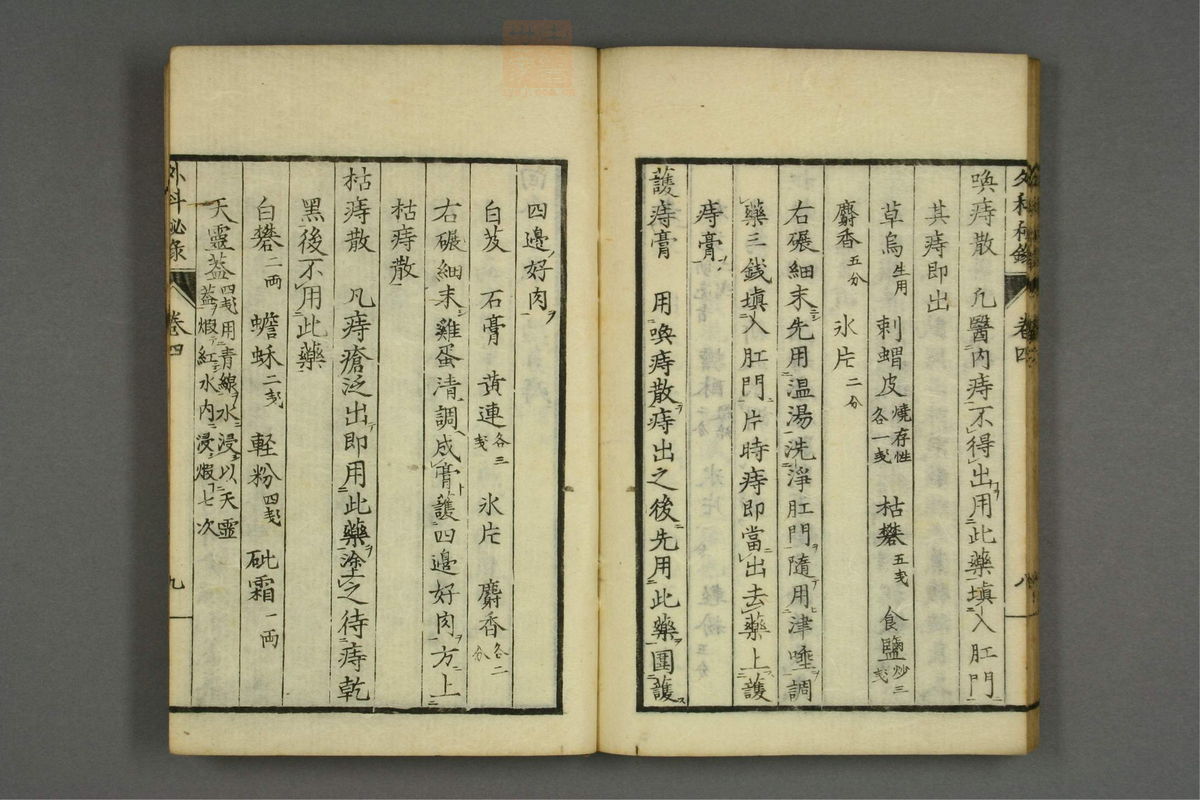 喚痔散 凢醫内痔不得出用此藥塡入肛門
其痔即出
草烏生用 刺蝟皮燒存性各一戔 枯礬五戔 食鹽炒三戔
麝香五分 氷片二分
右碾細末先用温湯洗淨肛門隨用津唾調
藥三銭塡入肛門片時痔即當出去藥上護
痔膏
護痔膏 用喚痔散痔出之後先用此藥圍護
卷四
八
四邊好肉
白芨 石膏 黄連各三戔 氷片 麝香各二分
右碾細末雞蛋清調成膏護四邊好肉方上
枯痔散
枯痔散 凡痔瘡泛出即用此藥塗之待痔乾
黑後不用此藥
白礬二両 蟾蘇二戔 軽粉四戔 砒霜一両
天靈蓋四戔用青線水浸以天靈蓋煆紅水内浸煆七次
外科祕录 卷四
九